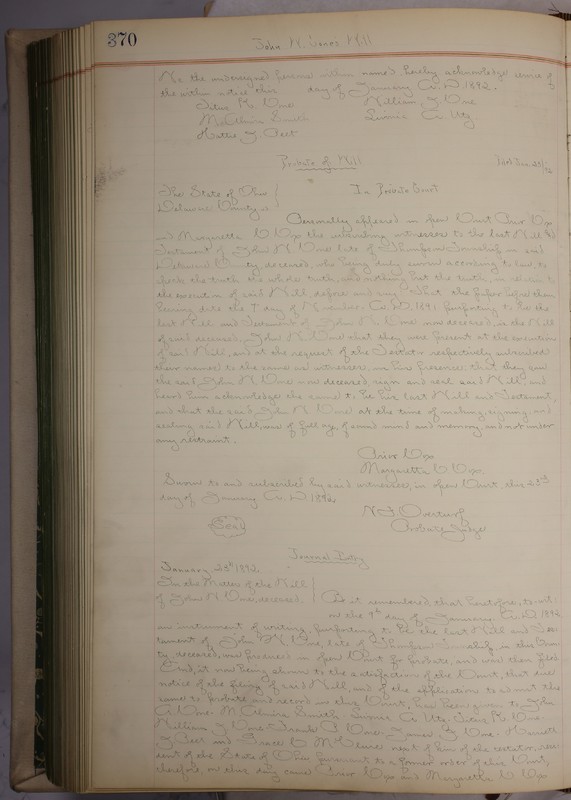 370
John N. Cones Will
We the undersigned persons within named hereby acknowledge service of
the within notice this day of January A. D. 1892.
Titus K. Cone William Y. Cone
McAlvira Smith Surmia A. Utz
Hattie Y. Peet
Probate of Will
The State of Ohio
Delaware County ss In Probate Court
Personally appeared in open Court
and Margaretta the subscribing witnesses to the last Will &
Testament of John N. Cone late of Thompson Township in said
Delaware County, deceased, who being duly sworn according to law, to
speak the truth the whole truth, and nothing but the truth, in relation to
the execution of said Will, depose and say; That the paper before them
bearing date the 7" day of November A. D. 1891 purporting to be the
last Will and Testament of John N. Cone now deceased is the Will
of said deceased, John N. Cone that they were present at the execution
of said Will, and at the request of the Testator respectively subscribed
their names to the same as witnesses, in his presence; that they saw
the said John N. Cone now deceased, sign and seal said Will, and
heard him acknowledge the same to be his last Will and Testament,
and that the said John N. Cone at the time of making, signing, and
sealing said Will, was of full age, of sound mind and memory, and not under
any restraint.
Margaretta
Sworn to and subscribed by said witnesses, in open Court this 23rd
day of January A. D. 1892
Seal
N. F. Overturf
Probate Judge
Journal Entry
January 23rd 1892.
In the Matter of the Will
of John N. Cone, deceased. Be it remembered that heretofore, to wit:
on the 9th day of January A. D. 1892
an instrument of writing, purporting to be the last Will and Tes-
tament of John N. Cone, late of Thompson Township, in this Coun-
ty, deceased, was produced in open Court for probate, and was then filed
And, it now being shown to the satisfaction of the Court, that due
notice of the filing of said Will, and of the application to admit the
same to probate and record in this Court, has been given to John
A. Cone. McAlvira Smith, Surmia A. Utz. Titus K. Cone.
William Y. Cone. Frank B. Cone. James Y. Cone. Harriett
Y. Peet and Grace next of kin of the testator, resi-
dent of the State of Ohio pursuant to a former order of this Court,
therefore, on this day came and Margaretta